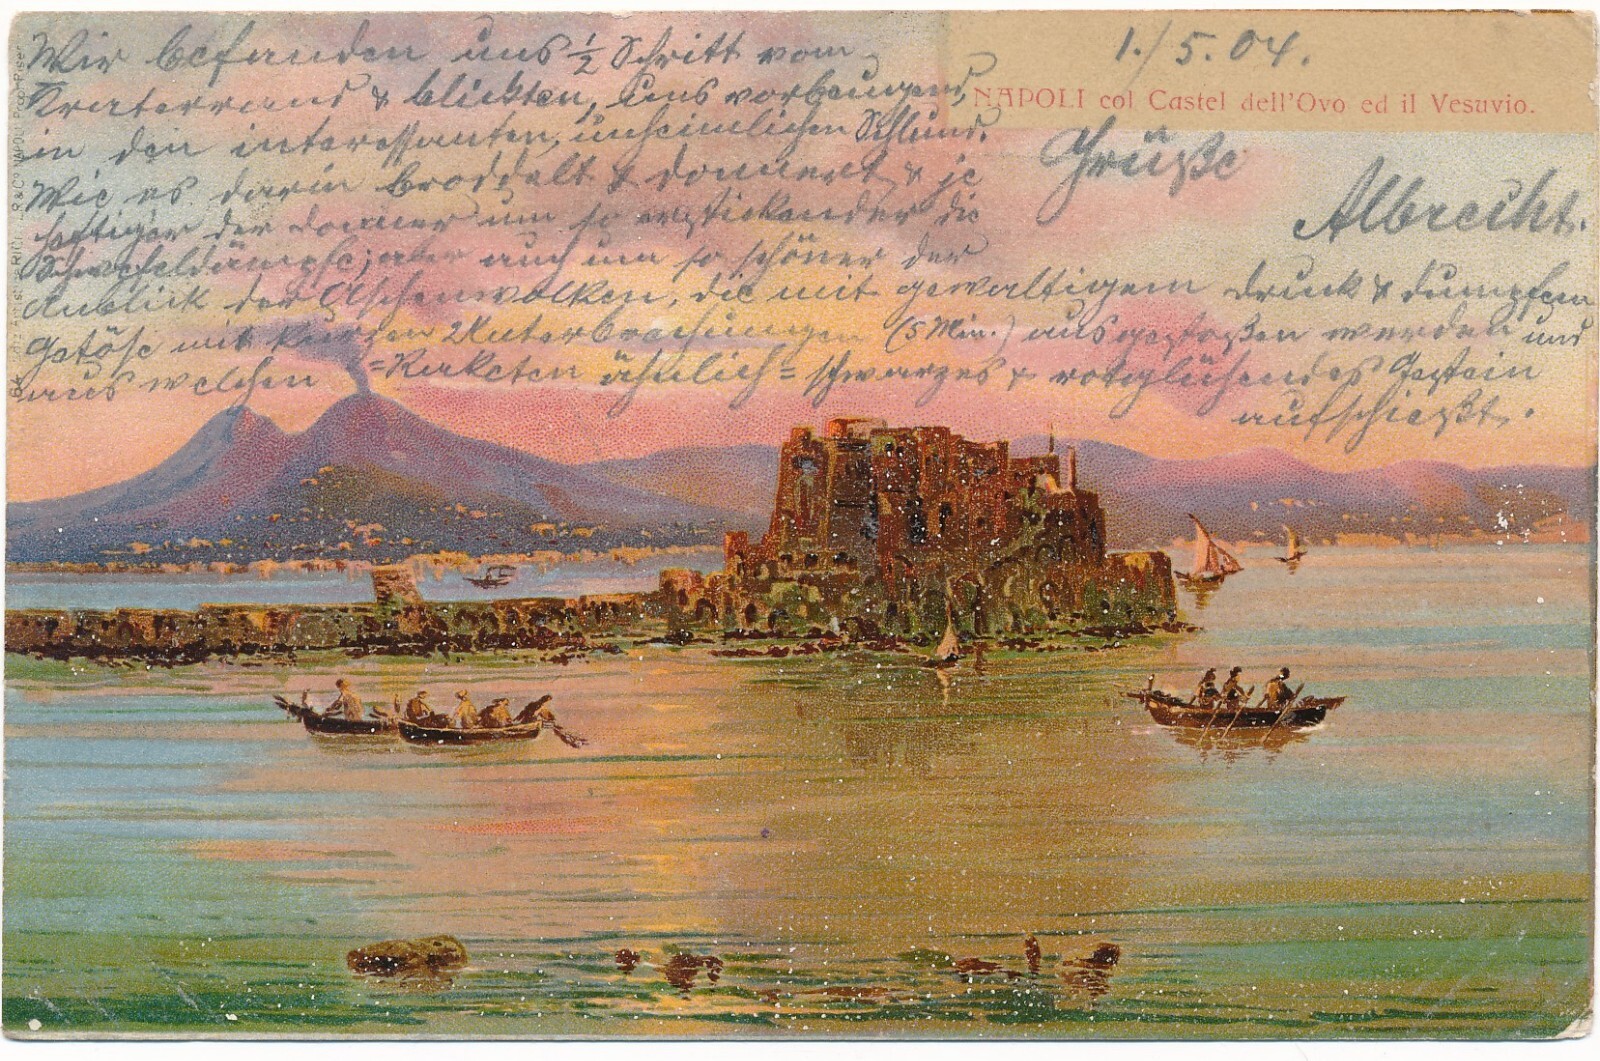 1./5.04.
NAPOLI col Castel dell'Ovo ed il Vesuvio.
Wir befanden uns ½ Schritt vom
Kraterrand & blickten, uns vorbeugend,
in den interessanten, unheimlichen Schlund.
Wie es darin broddelt & donnert & je
heftiger der Donner um so erstickender die
Schwefeldämpfe; aber auch um so schöner der
Anblick der Aschenwolken, die mit gewaltigem Druck & dumpfem
Getöse mit kurzen Unterbrechungen (5 Min.) ausgestoßen werden und
aus welchen =Raketen ähnlich= schwarzes & rotglühendes Gestein
aufschießt.
Grüße
Albrecht.
NAPOLI